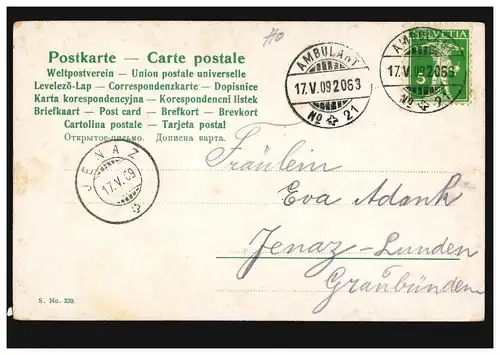 Ho
Postkarte — Carte postale
Weltpostverein — Union postale universelle
Levelező-Lap — Correspondenzkarte — Dopisnice
Karta korespondencyjna — Korespondencni listek
Briefkaart — Post card — Brefkort — Brevkort
Cartolina postale — Tarjeta postal
Открытое письмо. Дописна карта.
AMBULANT
17.V.09 2063
No 21
AMBULANT
17.V.09 2063
No 21
HELVETIA
5
JENAZ
17.V.09
Fräulein
Eva Adank
Jenaz-Lunden
Graubünden
S. No. 220.